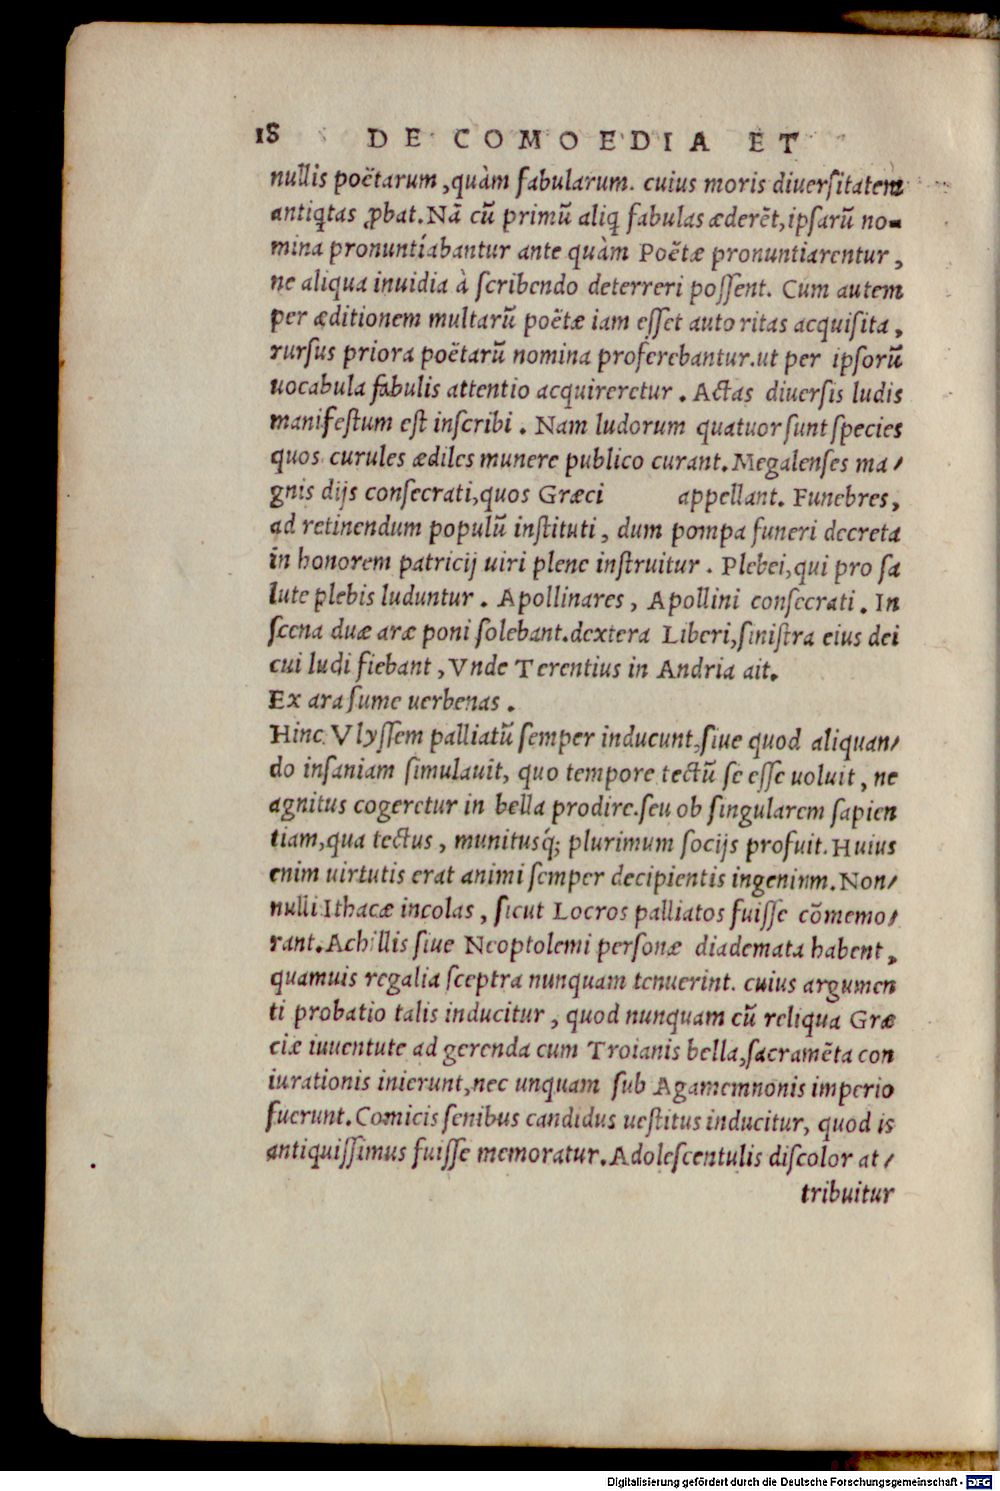 18 DE COMOEDIA ET
nullis poëtarum, quàm fabularum. cuius moris diuersitatem
antiq̃tas ꝓbat. Nã cũ primũ aliq̃ fabulas æderẽt, ipsarũ no-
mina pronuntiabantur ante quàm Poëtæ pronuntiarentur,
ne aliqua inuidia à scribendo deterreri possent. Cum autem
per æditionem multarũ poëtæ iam esset autoritas acquisita,
rursus priora poëtarũ nomina proferebantur. ut per ipsorũ
uocabula fabulis attentio acquireretur. Actas diuersis ludis
manifestum est inscribi. Nam ludorum quatuor sunt species
quos curules ædiles munere publico curant. Megalenses ma/
gnis dijs consecrati, quos Græci appellant. Funebres,
ad retinendum populũ instituti, dum pompa funeri decreta
in honorem patricij uiri plene instruitur. Plebei, qui pro sa
lute plebis luduntur. Apollinares, Apollini consecrati. In
scena duæ aræ poni solebant. dextera Liberi, sinistra eius dei
cui ludi fiebant, Vnde Terentius in Andria ait.
Ex ara sume uerbenas.
Hinc Vlyssem palliatũ semper inducunt, siue quod aliquan/
do insaniam simulauit, quo tempore tectũ se esse uoluit, ne
agnitus cogeretur in bella prodire. seu ob singularem sapien
tiam, qua tectus, munitusq́; plurimum socijs profuit. Huius
enim uirtutis erat animi semper decipientis ingeninm. Non/
nulli Ithacæ incolas, sicut Locros palliatos fuisse cõmemo/
rant. Achillis siue Neoptolemi personæ diademata habent,
quamuis regalia sceptra nunquam tenuerint. cuius argumen
ti probatio talis inducitur, quod nunquam cũ reliqua Græ
ciæ iuuentute ad gerenda cum Troianis bella, sacramẽta con
iurationis inierunt, nec unquam sub Agamemnonis imperio
fuerunt. Comicis senibus candidus uestitus inducitur, quod is
antiquissimus fuisse memoratur. Adolescentulis discolor at/
tribuitur
Digitalisierung gefördert durch die Deutsche Forschungsgemeinschaft - DFG